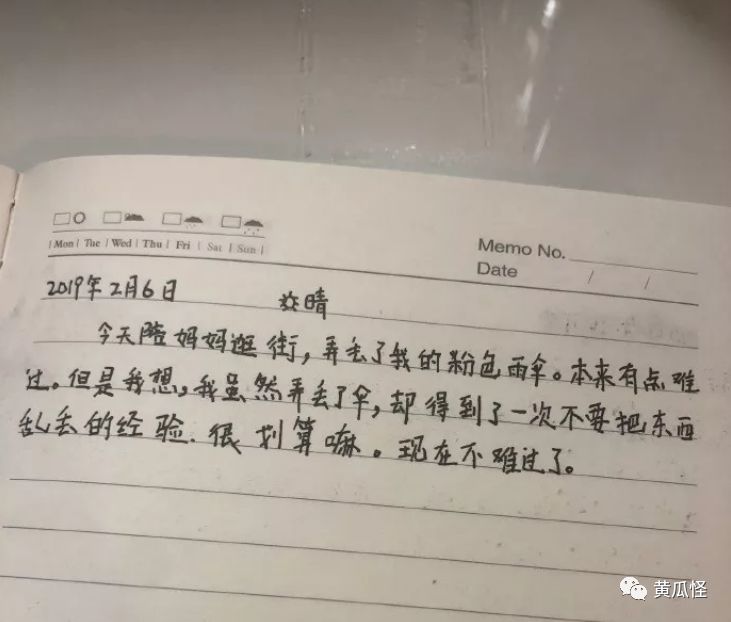 Mon Tue Wed Thu Fri Sat Sun
Memo No.
Date / /
2019年2月6日 晴
今天陪妈妈逛街,弄丢了我的粉色雨伞。本来有点难
过。但是我想,我虽然弄丢了伞,却得到了一次不要把东西
乱丢的经验.很划算嘛。现在不难过了。
黄瓜怪